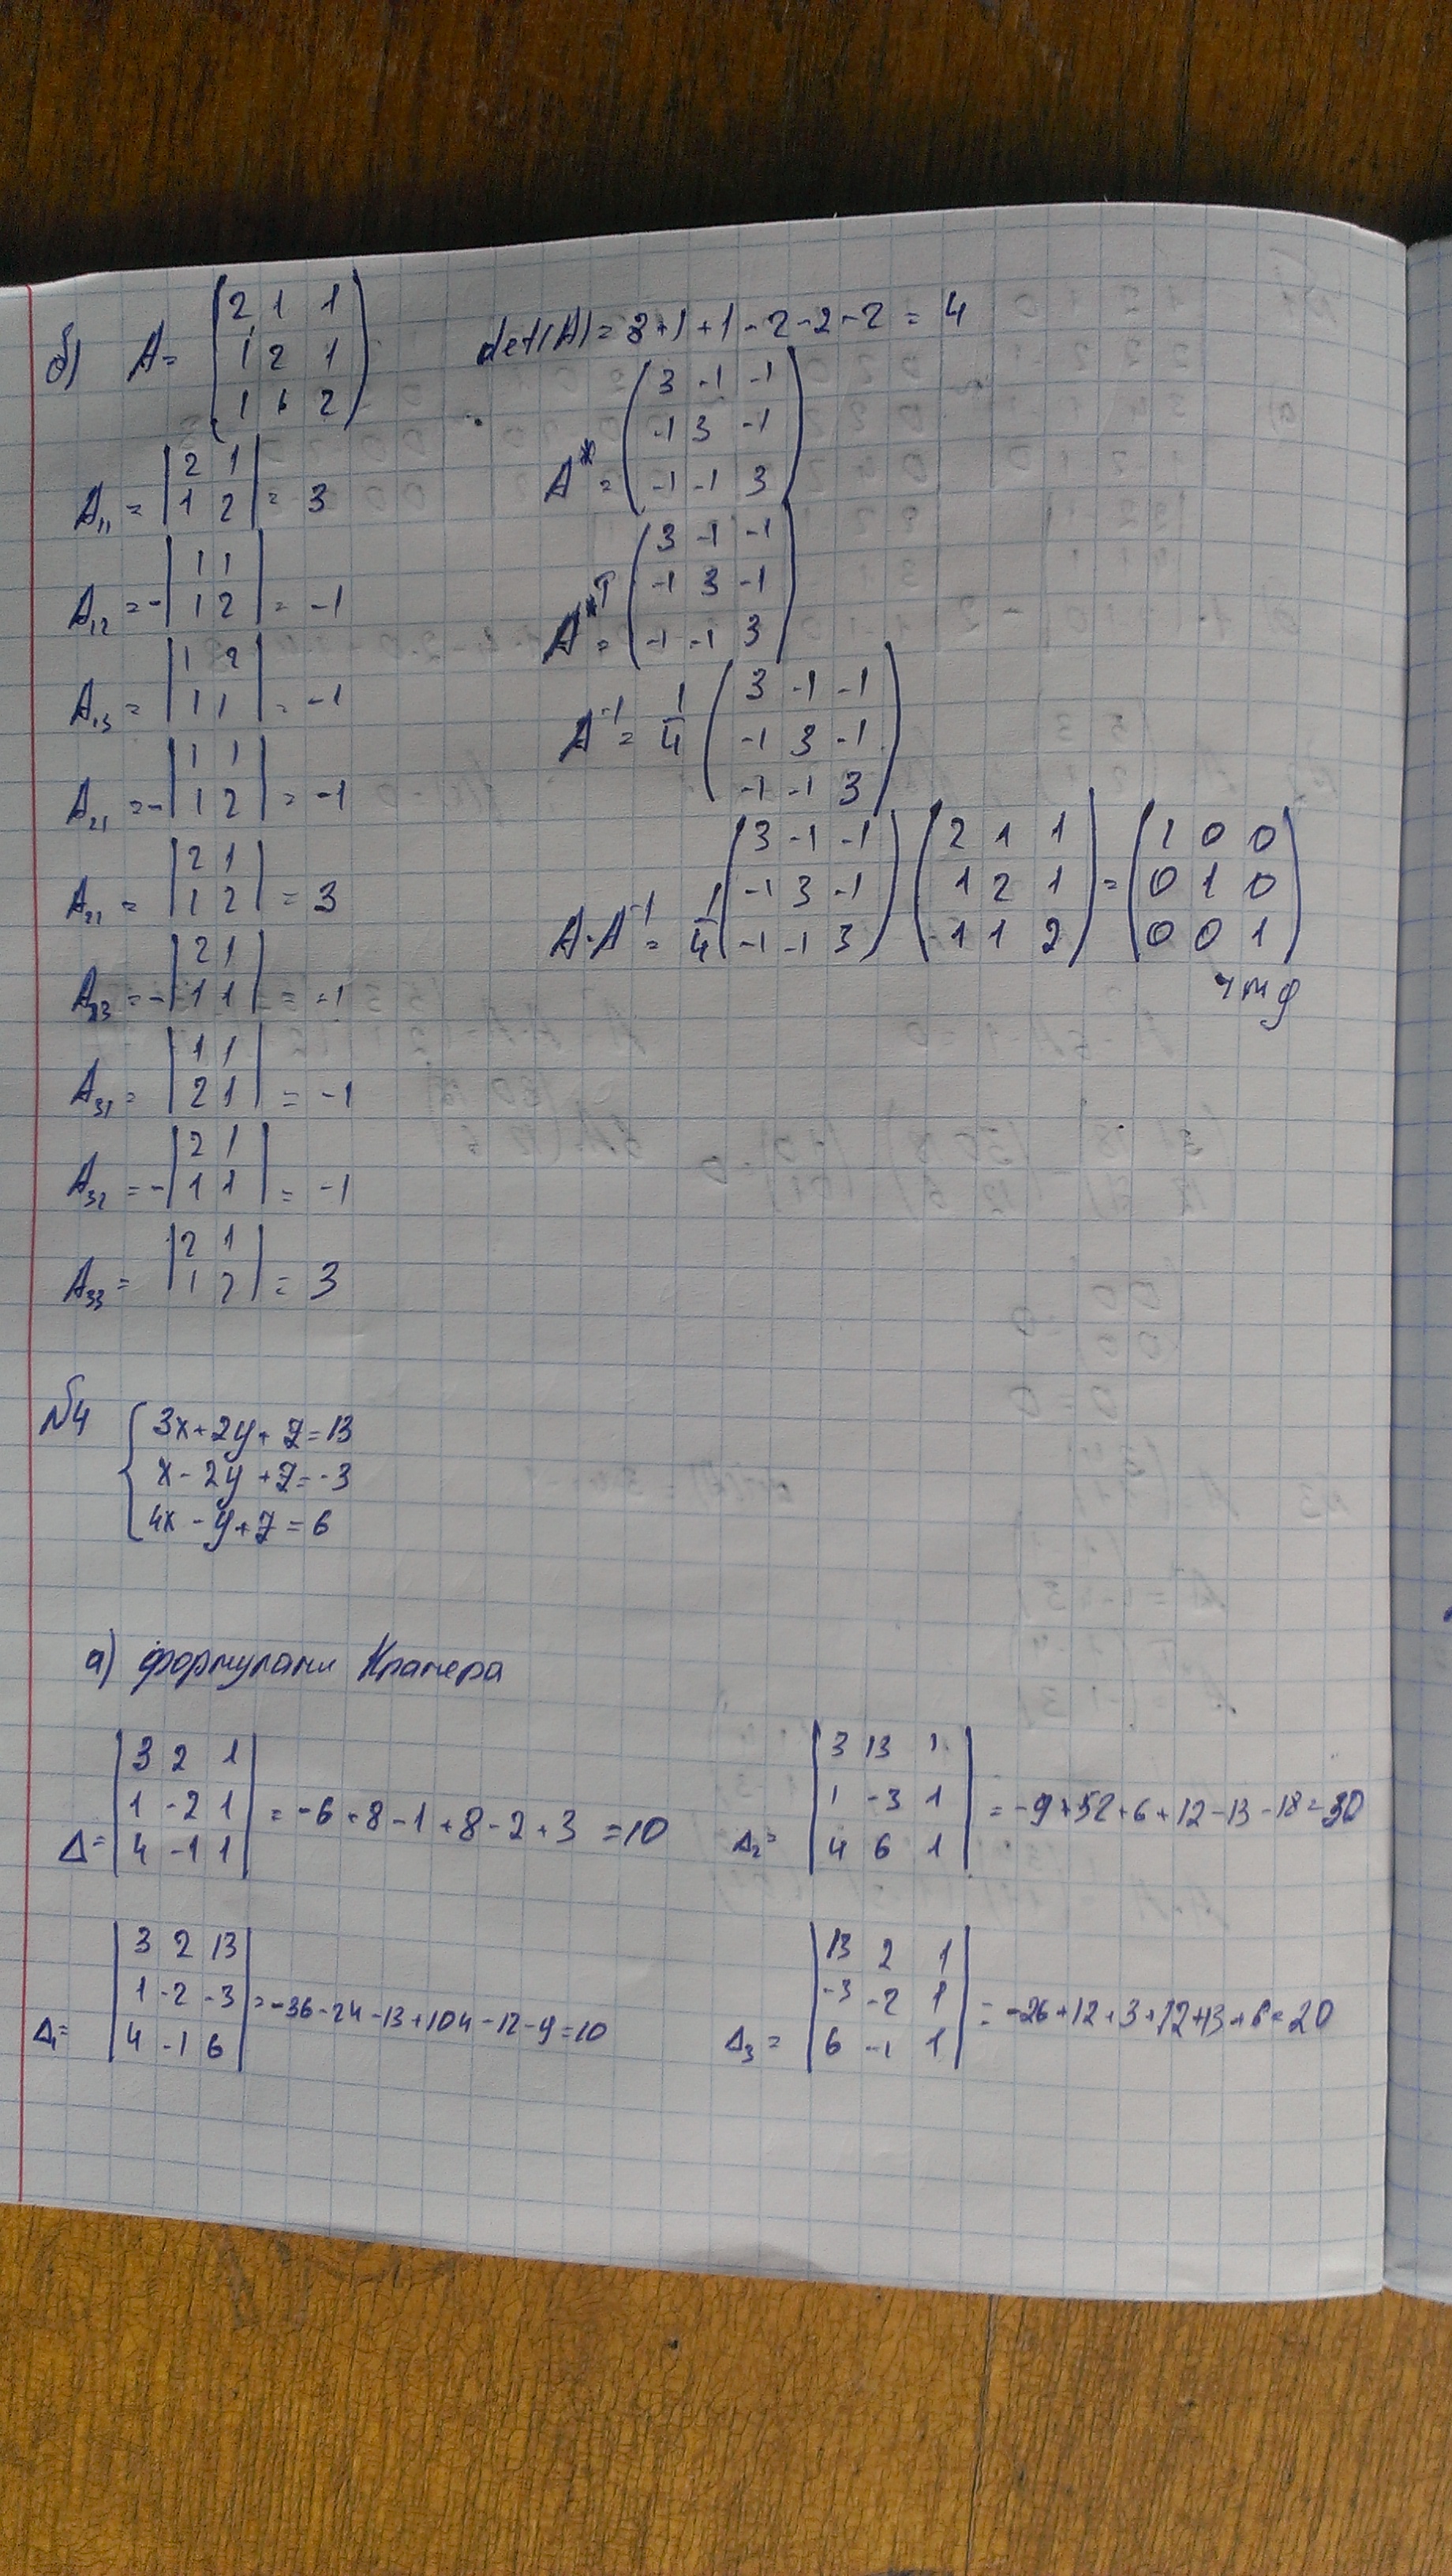 б) A = (2 1 1
1 2 1
1 1 2)
A₁₁ = |2 1
1 2| = 3
A₁₂ = -|1 1
1 2| = -1
A₁₃ = |1 2
1 1| = -1
A₂₁ = -|1 1
1 2| = -1
A₂₂ = |2 1
1 2| = 3
A₂₃ = -|2 1
1 1| = -1
A₃₁ = |1 1
2 1| = -1
A₃₂ = -|2 1
1 1| = -1
A₃₃ = |2 1
1 2| = 3
det(A) = 8+1+1-2-2-2 = 4
A* = (3 -1 -1
-1 3 -1
-1 -1 3)
A*ᵀ = (3 -1 -1
-1 3 -1
-1 -1 3)
A⁻¹ = 1/4 (3 -1 -1
-1 3 -1
-1 -1 3)
A·A⁻¹ = 1/4 (3 -1 -1) (2 1 1) = (1 0 0)
(-1 3 -1) (1 2 1) (0 1 0)
(-1 -1 3) (1 1 2) (0 0 1)
чтд
№4 {3x+2y+z=13
x-2y+z=-3
4x-y+z=6
а) формулами Крамера
Δ = |3 2 1
1 -2 1
4 -1 1| = -6+8-1+8-2+3 = 10
Δ₂ = |3 13 1
1 -3 1
4 6 1| = -9+52+6+12-13-18=30
Δ₁ = |3 2 13
1 -2 -3
4 -1 6| = -36-24-13+104-12-9=10
Δ₃ = |13 2 1
-3 -2 1
6 -1 1| = -26+12+3+12+13+6=20